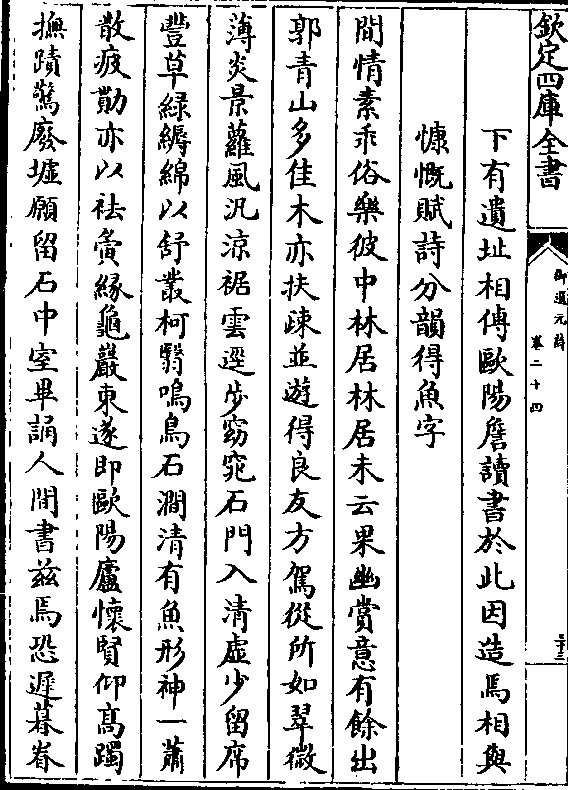 欽定四庫全書
御選元詩
卷二十四
二十三
下有遺址相傳歐陽詹讀書於此因造焉相與
慷慨賦詩分韻得魚字
閒情素乖俗樂彼中林居林居未云果幽賞意有餘出
郭青山多佳木亦扶疎並遊得良友方駕從所如翠微
薄炎景蘿風汎涼裾雲逕步窈窕石門入清虛少留席
豐草綠縟綿以舒叢柯翳鳴鳥石澗清有魚形神一蕭
散疲勩亦以祛夤緣龜巖東遂即歐陽廬懷賢仰高躅
撫蹟驚廢墟願留石中室畢誦人間書兹焉恐遲暮眷